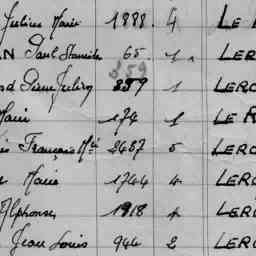 Julien Marie 1888. 4 LE
AN Paul Stanislas 65 1 LER
859
Pierre Julien 859 1 LERO
Marie 174 1 LE R
François Mie 2487 5 LERO
Marie 1744 4 LERO
Alphonse 1918 4 LERO
Jean Louis 944 2 LERO